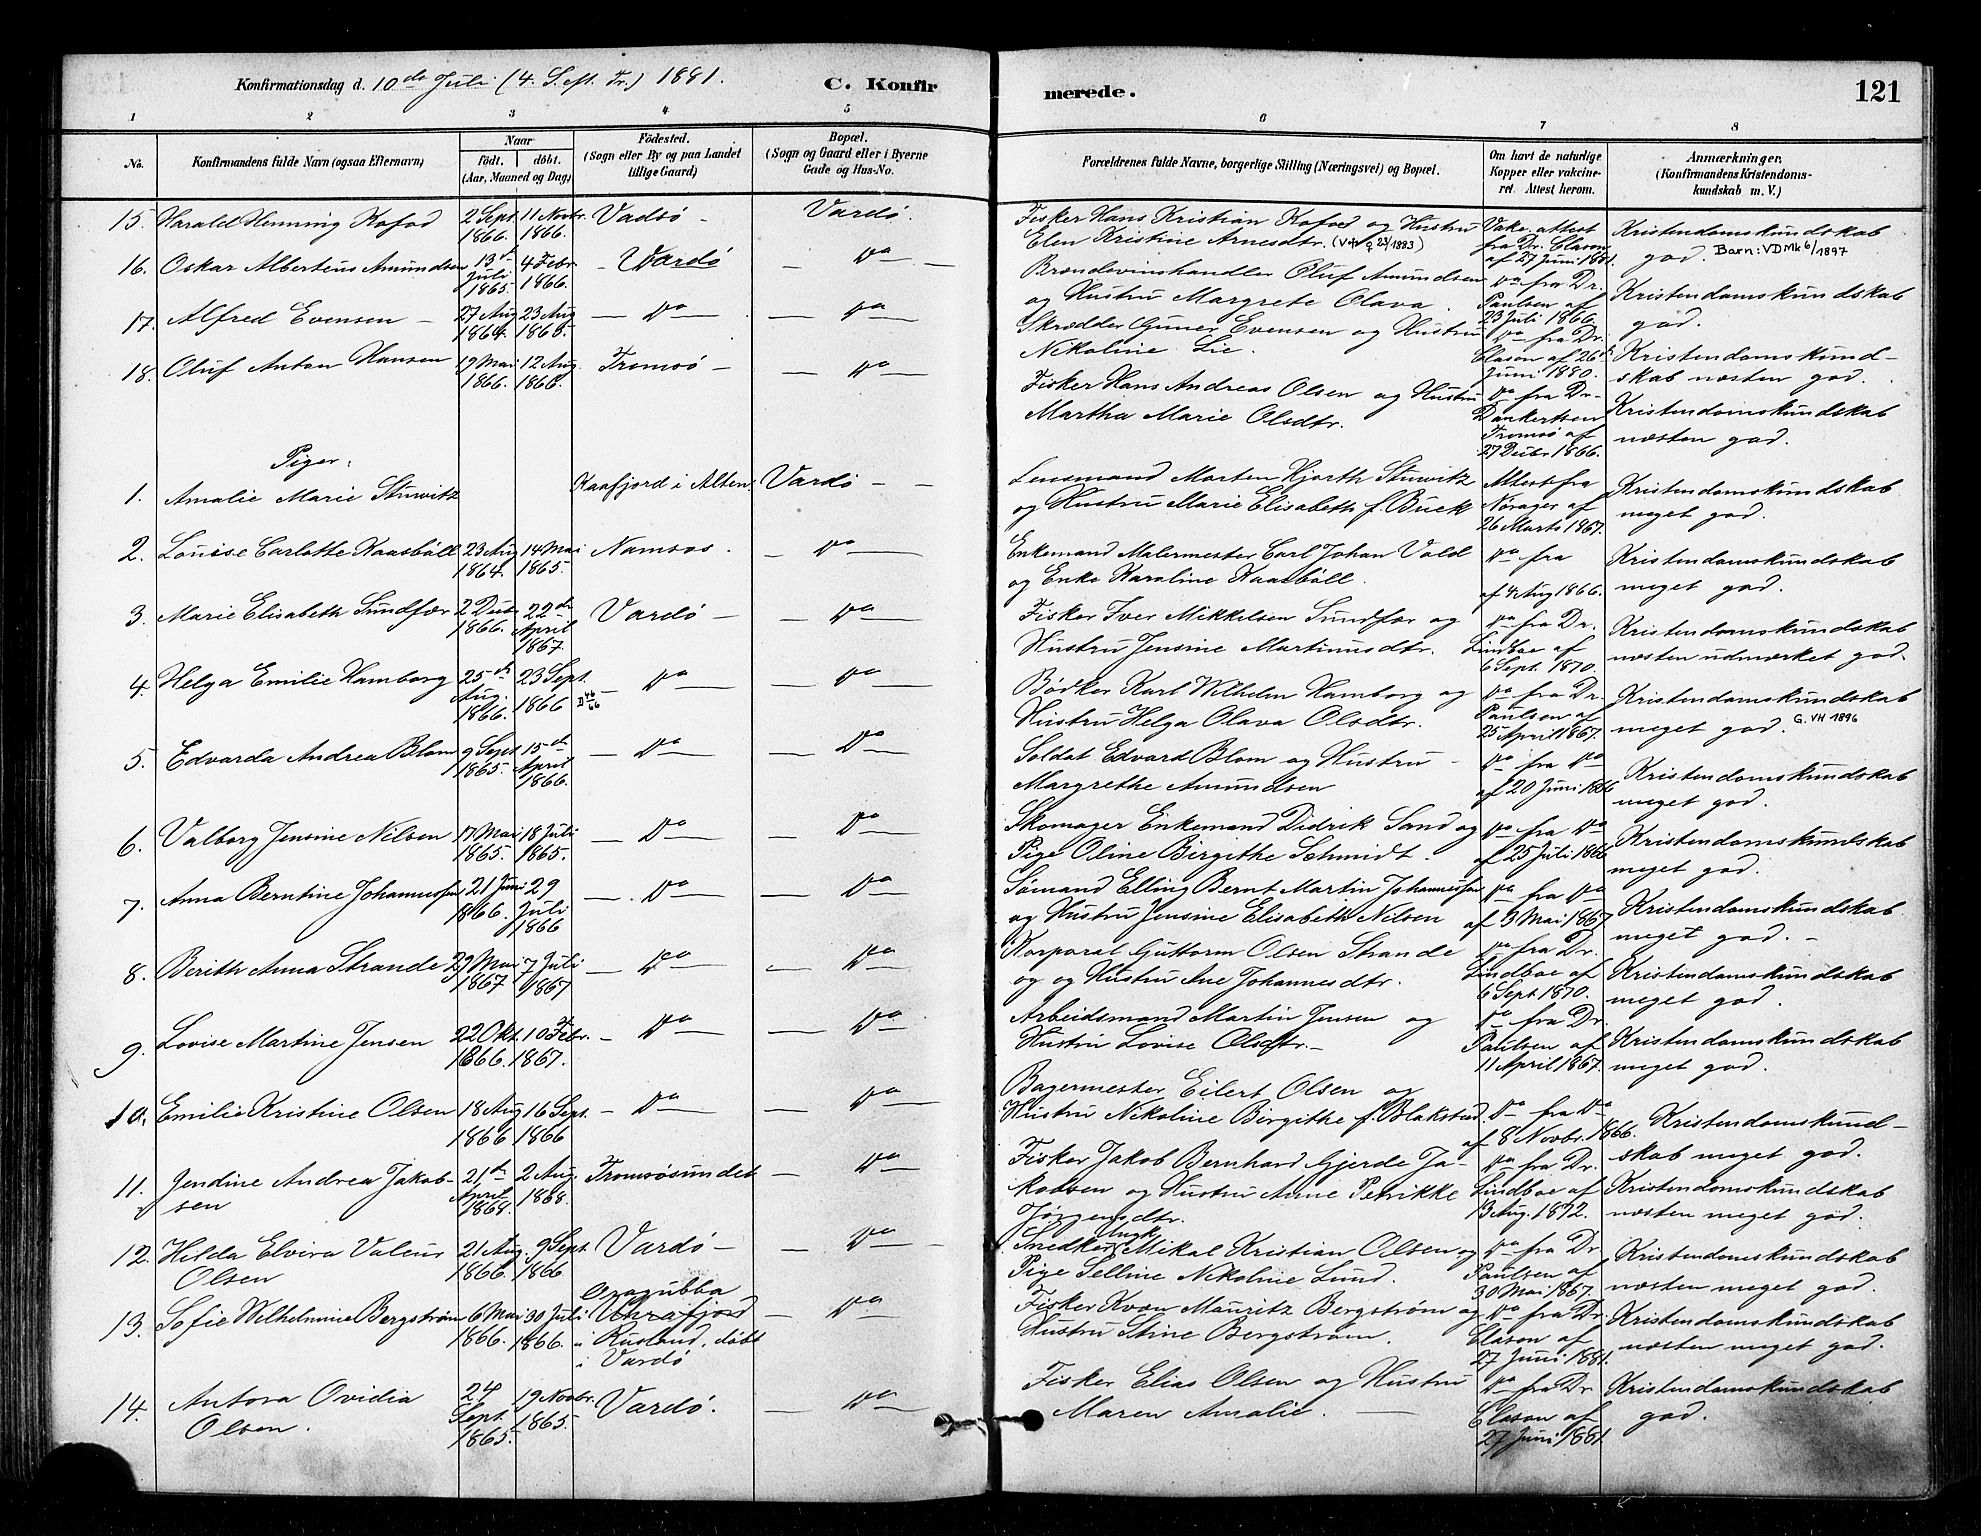 Konfirmationsdag d. 10de Juli (4. S. eft. Tr.) 1881.
C. Konfirmerede.
121
1 2 3 4 5 6 7 8
No.
Konfirmandens fulde Navn (ogsaa Efternavn)
Naar
født. døbt.
(Aar, Maaned og Dag)
Fødested.
(Sogn eller By og paa Landet
tillige Gaard)
Bopæl.
(Sogn og Gaard eller i Byerne
Gade og Hus-No.
Forældrenes fulde Navne, borgerlige Stilling (Næringsvei) og Bopæl.
Om havt de naturlige
Kopper eller vakcine-
ret. Attest herom.
Anmærkninger.
(Konfirmandens Kristendoms-
kundskab m. V.)
15. Harald Henning Kofod 2 Sept. 1866. 11 Novbr. 1866. Vadsö - Vardö.
Fisker Hans Kristian Kofoed og Hustru
Elen Kristine Arnesdtr. (VHV 9 23/1883)
Vakc. attest
fra Dr. Clason
af 27 Juni 1881.
Kristendomskundskab
god. Barn: VD Mk 6/1897
16. Oskar Albertus Amundsen 13de Juli 1865. 4 Febr. 1866. - Vardö - Do -
Brændevinshandler Oluf Amundsen
og Hustru Margrete Olava.
Do fra Dr.
Paulsen af
23 Juli 1866.
Kristendomskundskab
god.
17. Alfred Evensen - 27 Aug 1864. 23 Aug 1865. - Do - Do -
Skrædder Guner Evensen og Hustru
Nikoline Lie.
Do fra Dr.
Clason af 26de
Juni 1880.
Kristendomskund-
skab næsten god.
18. Oluf Anton Hansen 19 Mai 1866. 12 Aug. 1866. Tromsö - Do -
Fisker Hans Andreas Olsen og Hustru
Martha Marie Olsdtr.
Do fra Dr.
Dankertsen
Tromsö af
27 Decbr 1866.
Kristendomskundskab
næsten god.
Piger.
1. Amalie Marie Stuwitz Kaafjord i Alten. Vardö -
Lensmand Morten Hjorth Stuwitz
og Hustru Marie Elisabeth f. Buck
Attest fra
Norager af
26 Marts 1867.
Kristendomskundskab
meget god.
2. Louise Carlotte Kaasböll 23 Aug 1864. 14 Mai 1865. Namsos. - Do -
Enkemand Malermester Carl Johan Vold
og Enke Karoline Kaasböll.
Do fra
af 4 Aug 1866.
Kristendomskundskab
meget god.
3. Marie Elisabeth Sundfær 2 Decbr 1866. 22de April 1867. Vardö - Do -
Fisker Iver Mikkelsen Sundfær og
Hustru Jensine Martinusdtr.
Do fra Dr.
Lindboe af
6 Sept. 1870.
Kristendomskundskab
næsten udmærket god.
4. Helga Emilie Hamborg 25de Aug. 1866. 23 Sept. 1866 D 46/66 - Do - Do -
Bödker Karl Wilhelm Hamborg og
Hustru Helga Olava Olsdtr.
Do fra Dr.
Paulsen af
25 April 1867.
Kristendomskundskab
meget god. G. VH 1896
5. Edvarda Andrea Blom 9 Sept. 1865. 15de April 1866. - Do - Do -
Soldat Edvard Blom og Hustru -
Margrethe Amundsen
Do fra Do
af 20 Juni 1866
Kristendomskundskab
meget god.
6. Valborg Jensine Nilsen 17 Mai 1865. 18 Juli 1865. - Do - Do -
Skomager Enkemand Didrik Sand og
Pige Oline Birgithe Schmidt.
Do fra Do
af 25 Juli 1866
Kristendomskundskab
meget god.
7. Anna Berntine Johannessen 21 Juni 1866. 29 Juli 1866 - Do - Do -
Sömand Elling Bernt Martin Johannessen
og Hustru Jensine Elisabeth Nilsen
Do fra Do
af 3 Mai 1867
Kristendomskundskab
meget god. -
8. Berith Anna Strande 29 Mai 1867 7 Juli 1867 - Do - Do -
Korporal Guttorm Olsen Strande
og og Hustru Ane Johannesdtr.
Do fra Dr.
Lindboe af
6 Sept 1870.
Kristendomskundskab
meget god.
9. Lovise Martine Jensen 22 Okt. 1866. 10 Febr. 1867. - Do - Do -
Arbeidsmand Martin Jensen og
Hustru Lovise Olsdtr. -
Do fra Dr.
Paulsen af
11 April 1867.
Kristendomskundskab
meget god.
10. Emilie Kristine Olsen 18 Aug 1866 16 Sept. 1866 - Do - Do -
Bagermester Eilert Olsen og
Hustru Nikoline Birgithe f. Blakstad.
Do fra Do
af 8 Novbr. 1866.
Kristendomskund-
skab meget god.
11. Jendine Andrea Jakob-
sen 21de April 1868. 2 Aug. 1868. Tromsösundet - Do -
Fisker Jakob Bernhard Gjerde Ja-
kobsen og Hustru Anne Petrikke
Jørgensdtr.
Do fra Dr.
Lindboe af
13 Aug. 1872.
Kristendomskundskab
næsten meget god.
12. Hilda Elvira Valeur
Olsen 21 Aug. 1866. 9 Sept. 1866 Vardö - Do -
Ungk
Snedker Mikal Kristian Olsen og
Pige Selline Nikoline Lund.
Do fra Dr
Paulsen af
30 Mai 1867.
Kristendomskundskab
næsten meget god.
13. Sofie Wilhelmine Bergström 6 Mai 1866. 30 Juli 1866.
Urafjord
i Rusland, döbt
i Vardö - Do -
Fisker Kvæn Mauritz Bergström og
Hustru Stine Bergström.
Do fra Dr.
Clason af
27 Juni 1881.
Kristendomskundskab
næsten meget god.
14. Antora Ovidia
Olsen. 24 Sept. 1865. 19 Novbr. 1865. Vardö. - Do -
Fisker Elias Olsen og Hustru
Maren Amalie. -
Do fra Dr
Clason af
27 Juni 1881.
Kristendomskundskab
god.